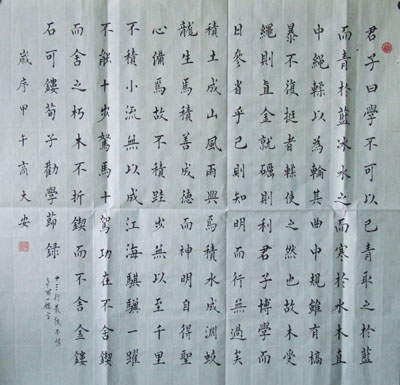 君子曰學不可以已青取之於藍
而青於藍冰水之而寒於水木直
中繩輮以為輪其曲中規雖有槁
暴不復挺者輮使之然也故木受
繩則直金就礪則利君子博學而
日參省乎已則知明而行無過矣
積土成山風雨興焉積水成淵蛟
龍生焉積善成德而神明自得聖
心備焉故不積跬步無以至千里
不積小流無以成江海騏驥一躍
不能十步駑馬十駕功在不舍鍥
而舍之朽木不折鍥而不舍金鏤
石可鏤荀子勸學節錄
十三行
歲序甲午商大安